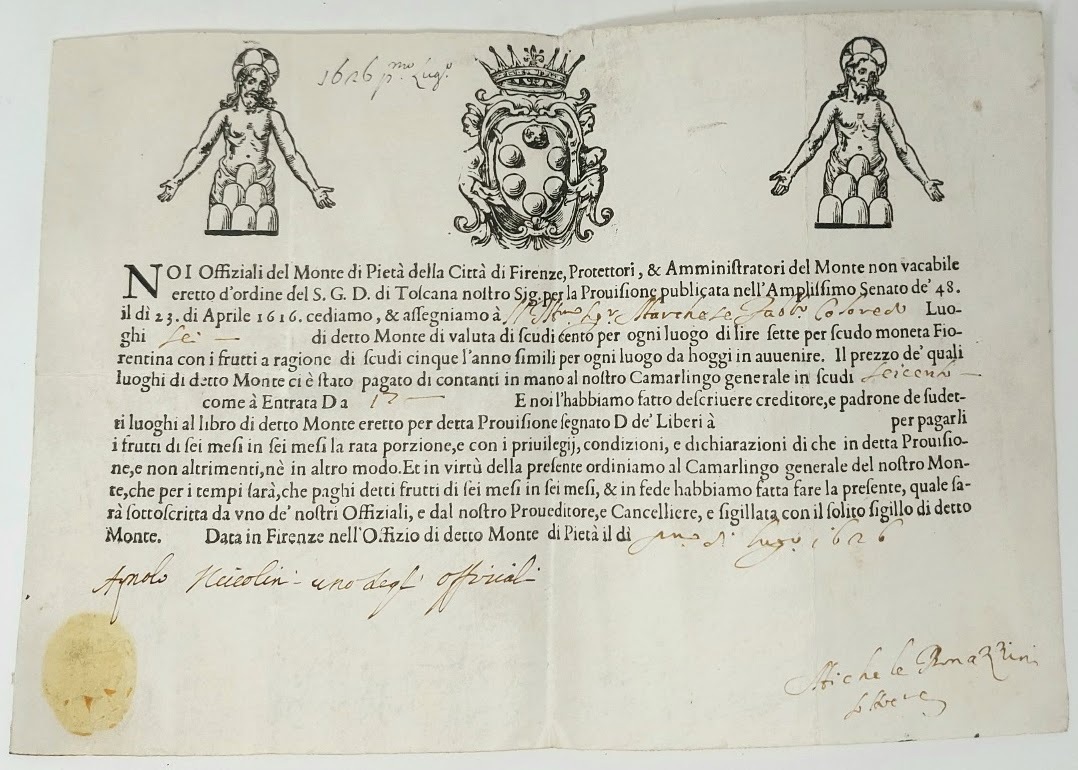 1626 pmo. Lugo.
NOI Offiziali del Monte di Pietà della Città di Firenze, Protettori, & Amminiſtratori del Monte non vacabile
eretto d'ordine del S. G. D. di Toſcana noſtro Sig. per la Prouiſione publicata nell'Ampliſſimo Senato de' 48.
il dì 23. di Aprile 1616. cediamo, & aſſegniamo à Sigr Marcheſe Colored Luo-
ghi Sei — di detto Monte di valuta di ſcudi cento per ogni luogo di lire ſette per ſcudo moneta Fio-
rentina con i frutti a ragione di ſcudi cinque l'anno ſimili per ogni luogo da hoggi in auuenire. Il prezzo de' quali
luoghi di detto Monte ci è ſtato pagato di contanti in mano al noſtro Camarlingo generale in ſcudi ſeicento —
come à Entrata D a — E noi l'habbiamo fatto deſcriuere creditore, e padrone de ſudet-
ti luoghi al libro di detto Monte eretto per detta Prouiſione ſegnato D de' Liberi à per pagarli
i frutti di ſei meſi in ſei meſi la rata porzione, e con i priuilegij, condizioni, e dichiarazioni di che in detta Prouiſio-
ne, e non altrimenti, nè in altro modo. Et in virtù della preſente ordiniamo al Camarlingo generale del noſtro Mon-
te, che per i tempi ſarà, che paghi detti frutti di ſei meſi in ſei meſi, & in fede habbiamo fatta fare la preſente, quale ſa-
rà ſottoſcritta da vno de' noſtri Offiziali, e dal noſtro Proueditore, e Cancelliere, e ſigillata con il ſolito ſigillo di detto
Monte. Data in Firenze nell'Offizio di detto Monte di Pietà il dì pmo di Lugo. 1626
Agnolo Niccolini uno degl' offitiali
Michele